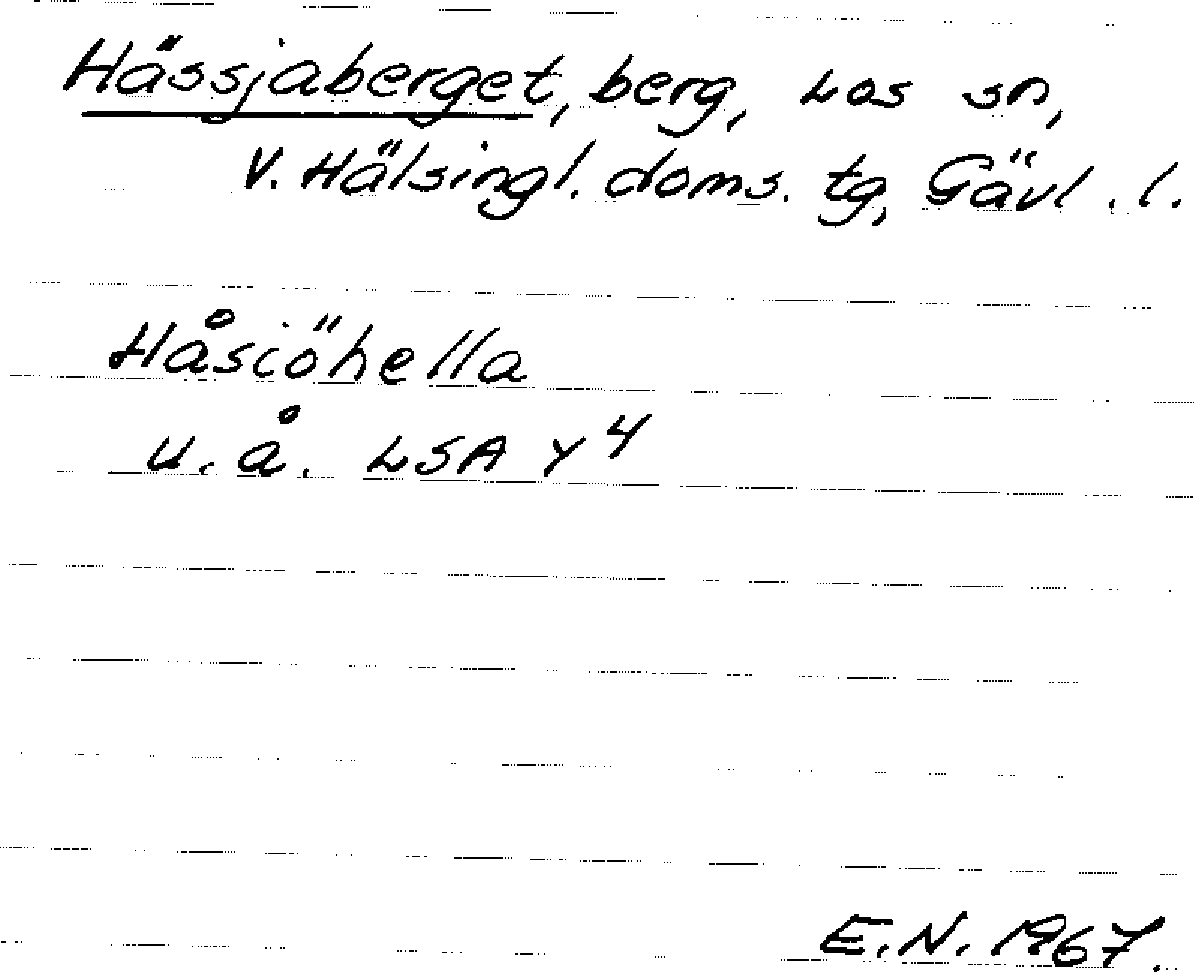 Hässjaberget, berg, Los sn,
V. Hälsingl. doms. tg, Gävl. l.
Håsiöhella
u. å. LSA Y 4
E.N. 1967.